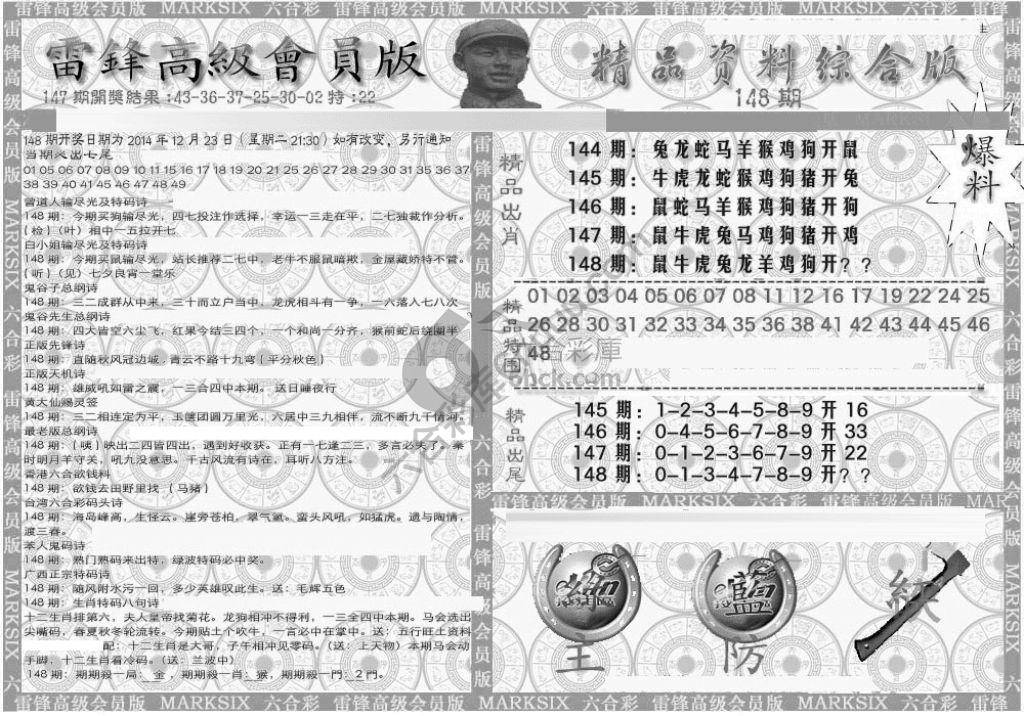 雷锋高级会员版 MARKSIX 六合彩 雷锋高级会员版 MARKSIX 六合彩 雷锋高级会员版 MARKSIX 六合彩 雷锋
雷鋒高級會員版
147期開獎結果:43-36-37-25-30-02特:22
精品资料综合版
148期
爆料
148期开奖日期为2014年12月23日（星期二21:30）如有改变，另行通知
01 05 06 07 08 09 10 11 15 16 17 18 19 20 21 25 26 27 28 29 30 31 35 36 37
38 39 40 41 45 46 47 48 49
曾道人输尽光及特码诗
148期：今期买狗输尽光，四七投注作选择，幸运一三走在平，二七独裁作分析。
{检}（叶）相中一五拉开七
白小姐输尽光及特码诗
148期：今期买鼠输尽光，站长推荐二七中，老牛不服鼠暗欺，金屋藏娇特不管。
{听}（见）七夕良宵一堂乐
鬼谷子总纲诗
148期：三二成群从中来，三十而立户当中，龙虎相斗有一争，一六落入七八次
鬼谷先生总纲诗
148期：四大皆空六尘飞，红果今结三四个，一个和尚一分齐，猴前蛇后绕圈半
正版先锋诗
148期：直随秋风冠边城，青云不路十九弯{平分秋色}
正版天机诗
148期：雄威吼如雷之震，一三合四中本期。送日睡夜行
黄大仙赐灵签
148期：三二相连定为平，玉箧团圆万里光，六居中三九相伴，流不断九千情河。
最老版总纲诗
148期：{咦}映出二四皆四出，遇到好收获。正有一七逢二三，多言必失了。秦
时明月羊守关，吼九没意思。千古风流有诗在，耳听八方注。
香港六合欲钱料
148期：欲钱去田野里找 {马猪}
台湾六合彩码头诗
148期：海岛峰高，生怪云。崖旁苍柏，翠气氤。蛮头风吼，如猛虎。遗与陶情，
渡三春。
本人鬼码诗
148期：熟门熟码来出特，绿波特码必中奖。
广西正宗特码诗
148期：随风附水污一回，多少英雄叹此生。送：毛辉五色
148期：生肖特码八句诗
十二生肖排第六，夫人皇帝找菊花。龙狗相冲不得利，一三全四中本期。马会选出
尖嘴码，春夏秋冬轮流转。今期贴土个吹牛，一言必中在掌中。送：五行旺土资料
配：十二生肖是大哥，子午相冲见零码。（送：上天物）本期马会动
手脚，十二生肖看冷码。（送：兰波中）
148期：期期殺一局：金，期期殺一肖：猴，期期殺一門：2門。
精品出肖
144期：兔龙蛇马羊猴鸡狗开鼠
145期：牛虎龙蛇猴鸡狗猪开兔
146期：鼠蛇马羊猴鸡狗猪开狗
147期：鼠牛虎兔马鸡狗猪开鸡
148期：鼠牛虎兔龙羊鸡狗开？？
精品特围
01 02 03 04 05 06 07 08 11 12 16 17 19 22 24 25
26 28 30 31 32 33 34 35 36 38 41 42 43 44 45 46
48
精品出尾
145期：1-2-3-4-5-8-9开16
146期：0-4-5-6-7-8-9开33
147期：0-1-2-3-6-7-9开22
148期：0-1-3-4-7-8-9开？？
雷锋高级会员版 MARKSIX 六合彩 雷锋高级会员版
綠
藍
红
主
防
雷锋高级会员版 MARKSIX 六合彩 雷锋高级会员版 MARKSIX 六合彩 雷锋高级会员版 MARKSIX 六合彩 雷锋